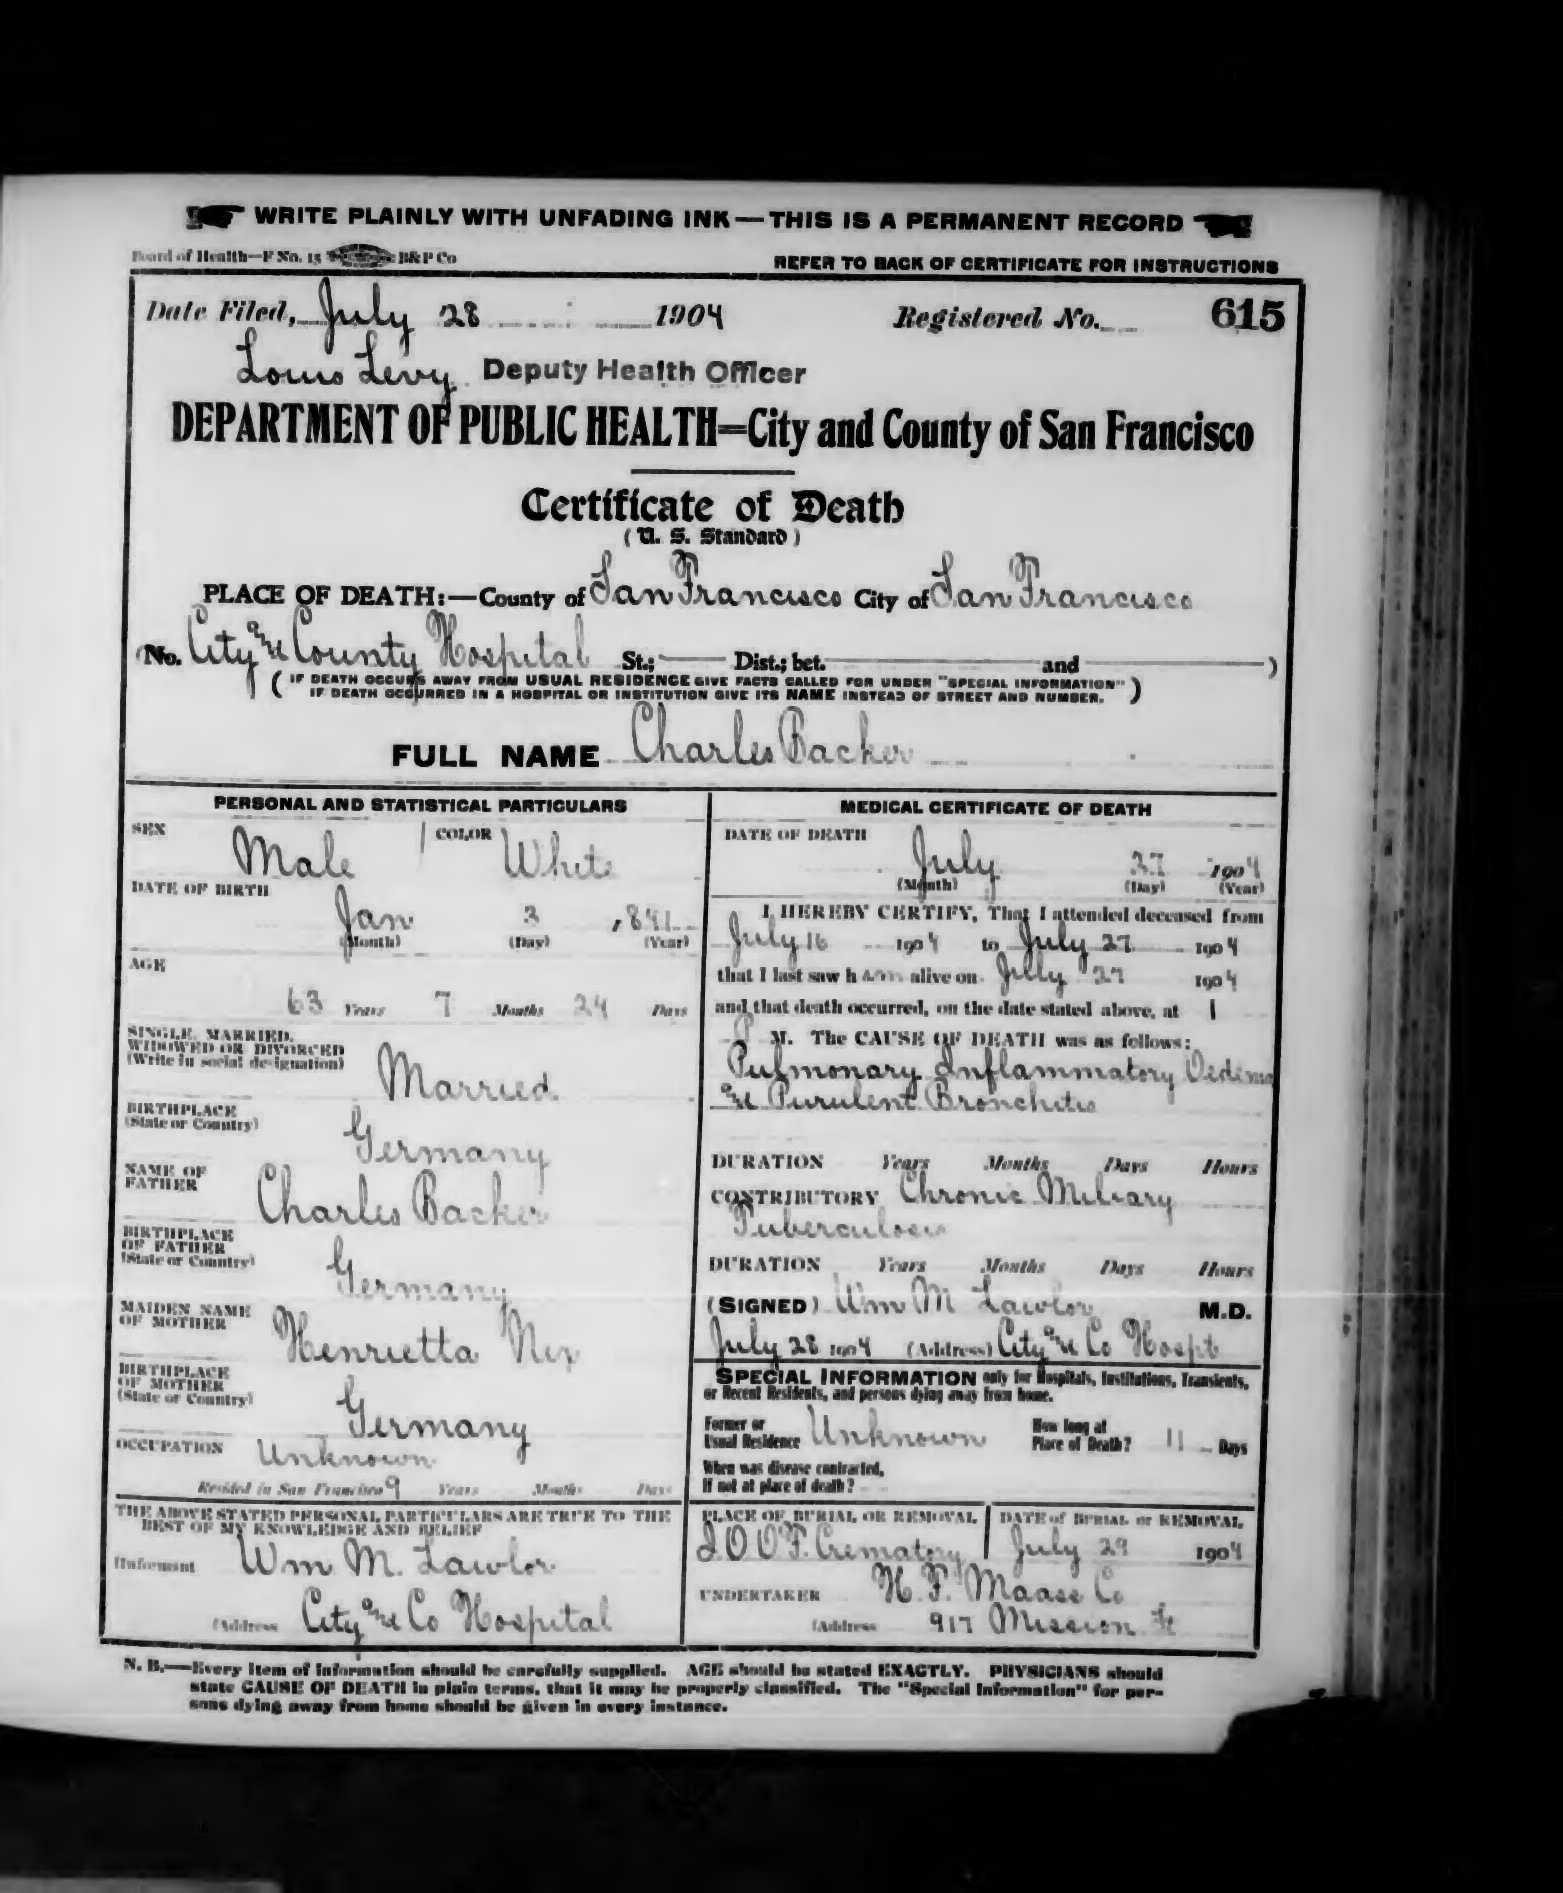 WRITE PLAINLY WITH UNFADING INK — THIS IS A PERMANENT RECORD
Board of Health—F No. 15 B&P Co
REFER TO BACK OF CERTIFICATE FOR INSTRUCTIONS
Date Filed, July 28 1904 Registered No. 615
Louis Levy Deputy Health Officer
DEPARTMENT OF PUBLIC HEALTH=City and County of San Francisco
Certificate of Death
(U. S. Standard)
PLACE OF DEATH:—County of San Francisco City of San Francisco
(No. City and County Hospital St.; Dist.; bet. and )
(IF DEATH OCCURS AWAY FROM USUAL RESIDENCE GIVE FACTS CALLED FOR UNDER "SPECIAL INFORMATION"
IF DEATH OCCURRED IN A HOSPITAL OR INSTITUTION GIVE ITS NAME INSTEAD OF STREET AND NUMBER.)
FULL NAME Charles Backer
PERSONAL AND STATISTICAL PARTICULARS
SEX Male COLOR White
DATE OF BIRTH
Jan 3 1841
(Month) (Day) (Year)
AGE
63 Years 7 Months 24 Days
SINGLE, MARRIED,
WIDOWED OR DIVORCED
(Write in social designation) Married
BIRTHPLACE
(State or Country) Germany
NAME OF
FATHER Charles Backer
BIRTHPLACE
OF FATHER
(State or Country) Germany
MAIDEN NAME
OF MOTHER Henrietta Nix
BIRTHPLACE
OF MOTHER
(State or Country) Germany
OCCUPATION Unknown
Resided in San Francisco 9 Years Months Days
THE ABOVE STATED PERSONAL PARTICULARS ARE TRUE TO THE
BEST OF MY KNOWLEDGE AND BELIEF
(Informant Wm M. Lawlor
(Address City and Co Hospital
MEDICAL CERTIFICATE OF DEATH
DATE OF DEATH
July 27 1904
(Month) (Day) (Year)
I HEREBY CERTIFY, That I attended deceased from
July 16 1904 to July 27 1904
that I last saw him alive on July 27 1904
and that death occurred, on the date stated above, at 1
P M. The CAUSE OF DEATH was as follows:
Pulmonary Inflammatory Oedema
and Purulent Bronchitis
DURATION Years Months Days Hours
CONTRIBUTORY Chronic Miliary
Tuberculosis
DURATION Years Months Days Hours
(SIGNED) Wm M Lawlor M.D.
July 28 1904 (Address) City and Co Hospt
SPECIAL INFORMATION only for Hospitals, Institutions, Transients,
or Recent Residents, and persons dying away from home.
Former or
Usual Residence Unknown How long at
Place of Death? 11 Days
When was disease contracted,
If not at place of death?
PLACE OF BURIAL OR REMOVAL DATE of BURIAL or REMOVAL
I O O F. Crematory July 29 1904
UNDERTAKER H. F. Maass Co
(Address 917 Mission St
N. B.—Every item of information should be carefully supplied. AGE should be stated EXACTLY. PHYSICIANS should
state CAUSE OF DEATH in plain terms, that it may be properly classified. The "Special Information" for per-
sons dying away from home should be given in every instance.